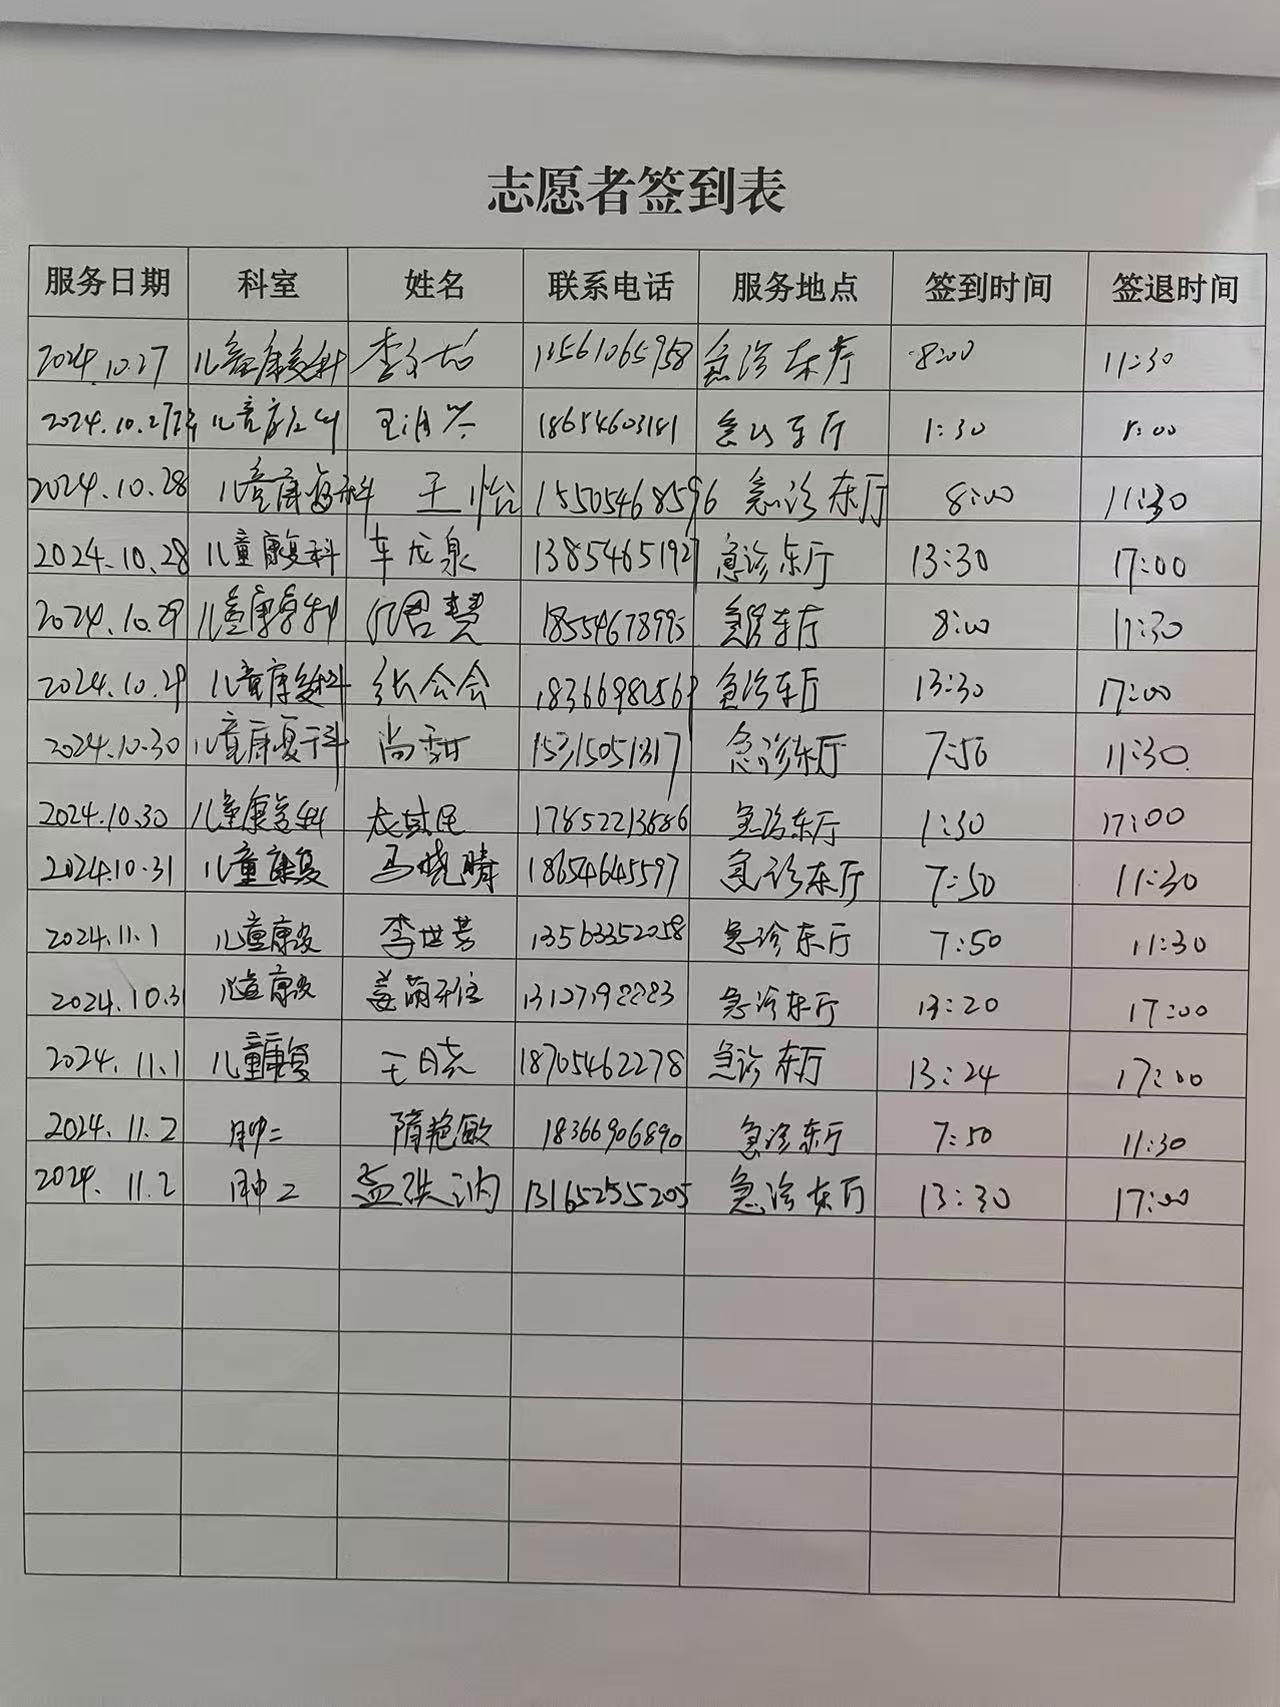 志愿者签到表
服务日期 科室 姓名 联系电话 服务地点 签到时间 签退时间
2024.10.27 儿童康复科 李 13561065958 急诊东厅 8:00 11:30
2024.10.27 儿童康复科 王 18654603181 急诊东厅 1:30
2024.10.28 儿童康复科 王怡 15505468596 急诊东厅 8:00 11:30
2024.10.28 儿童康复科 车龙泉 13854651927 急诊东厅 13:30 17:00
2024.10.29 儿童康复科 君慧 18554678995 急诊东厅 8:00 11:30
2024.10.29 儿童康复科 张会会 急诊东厅 13:30 17:00
2024.10.30 儿童康复科 尚甜 15315051317 急诊东厅 7:50 11:30
2024.10.30 儿童康复科 17852213686 急诊东厅 1:30 17:00
2024.10.31 儿童康复 马晓晴 18654645597 急诊东厅 7:50 11:30
2024.11.1 儿童康复 李世芳 13563352058 急诊东厅 7:50 11:30
2024.10.31 儿童康复 姜萌 急诊东厅 13:20 17:00
2024.11.1 儿童康复 王晓 18705462278 急诊东厅 13:24 17:00
2024.11.2 肿二 隋艳敏 18366906890 急诊东厅 7:50 11:30
2024.11.2 肿二 孟洪沟 13165255205 急诊东厅 13:30 17:00